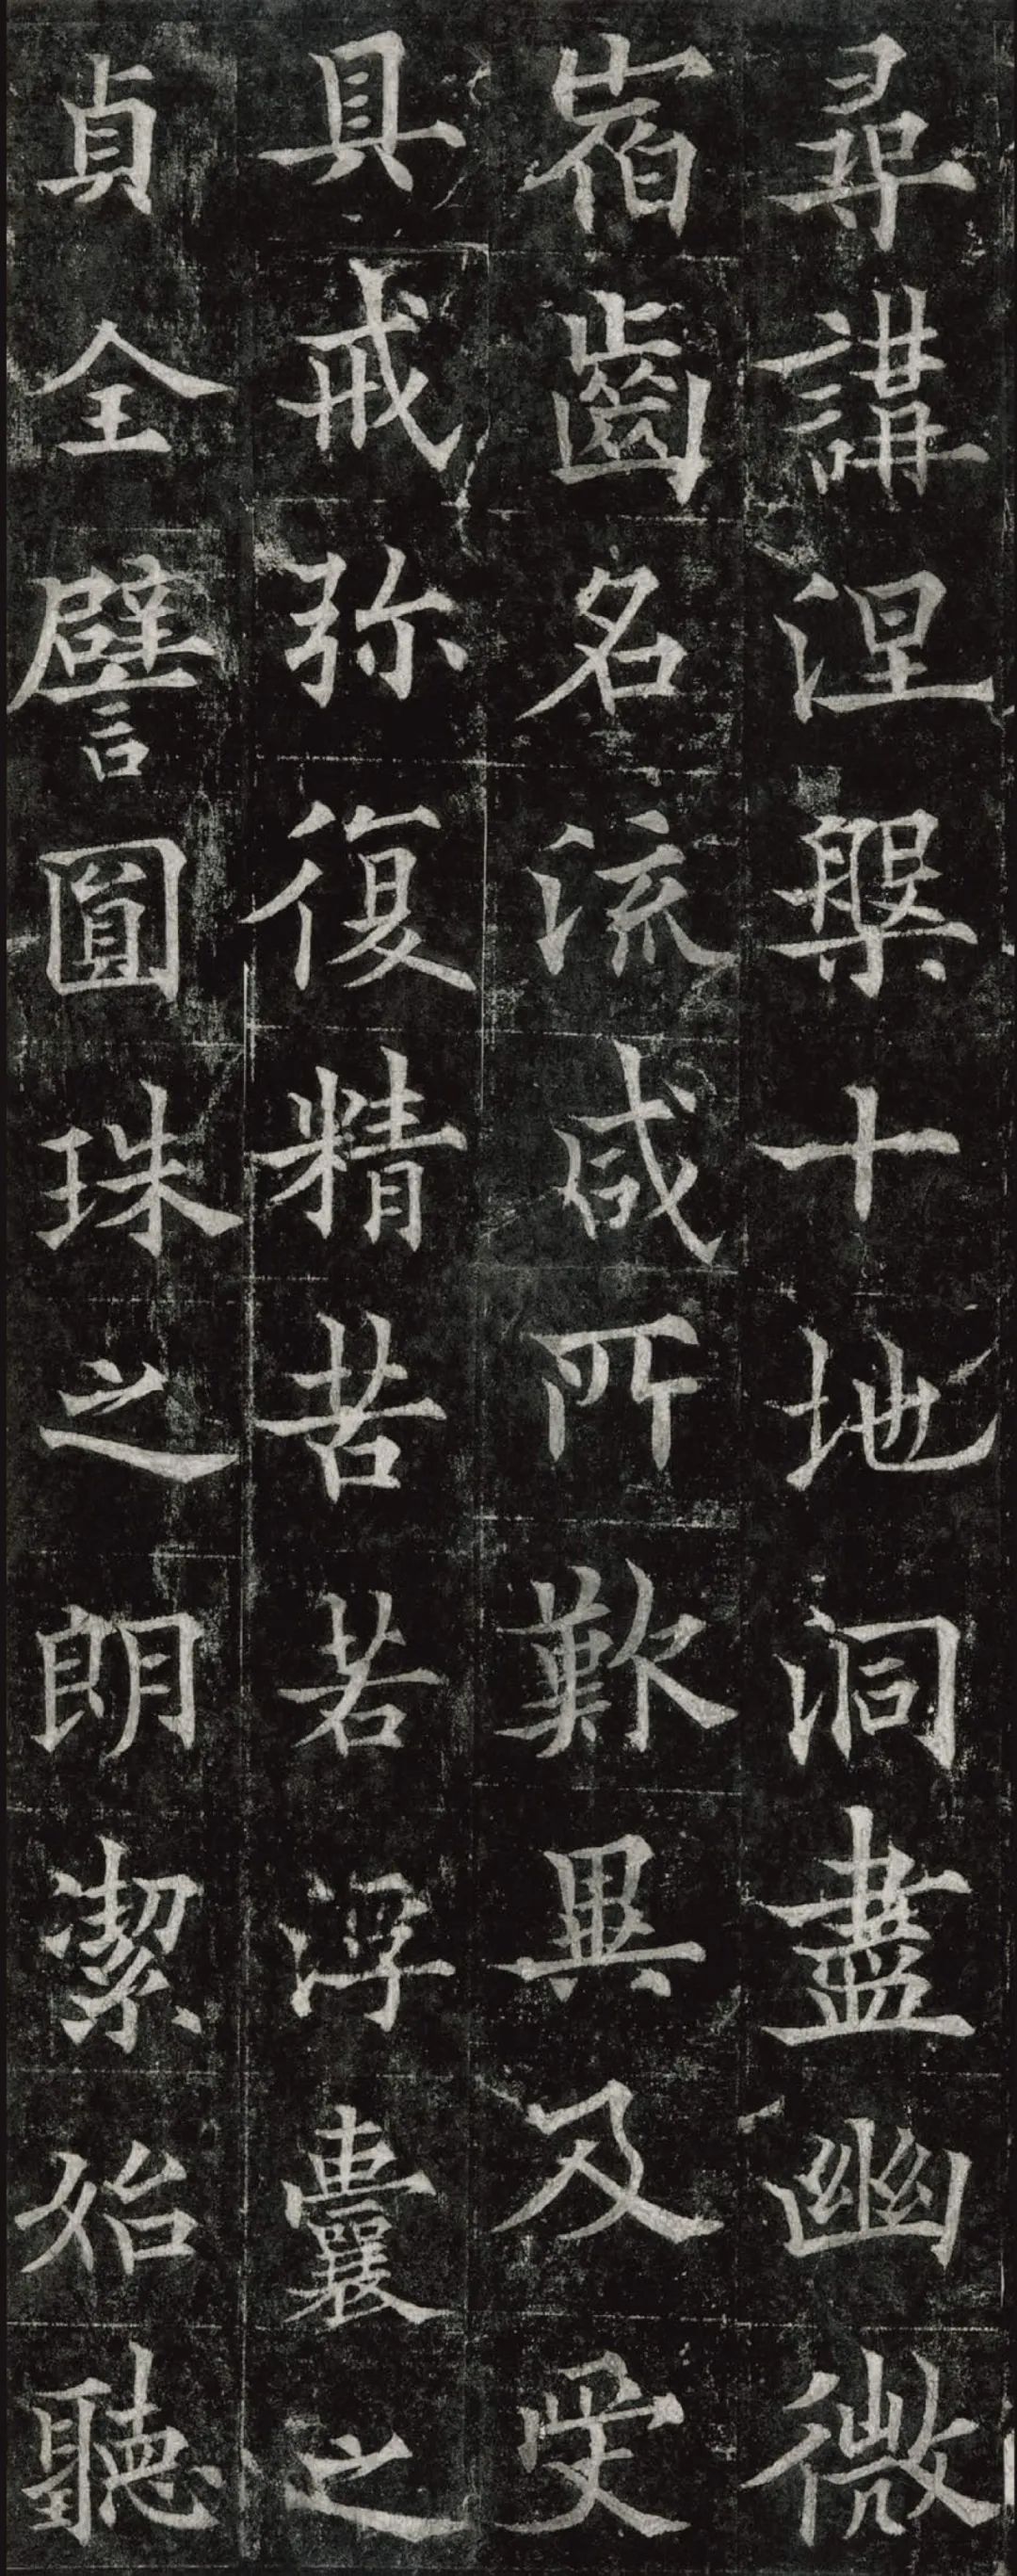 尋講涅槃十地洞盡幽微
宿齒名流咸所歎異及受
具戒弥復精苦若浮囊之
貞全譬圓珠之朗潔始聽